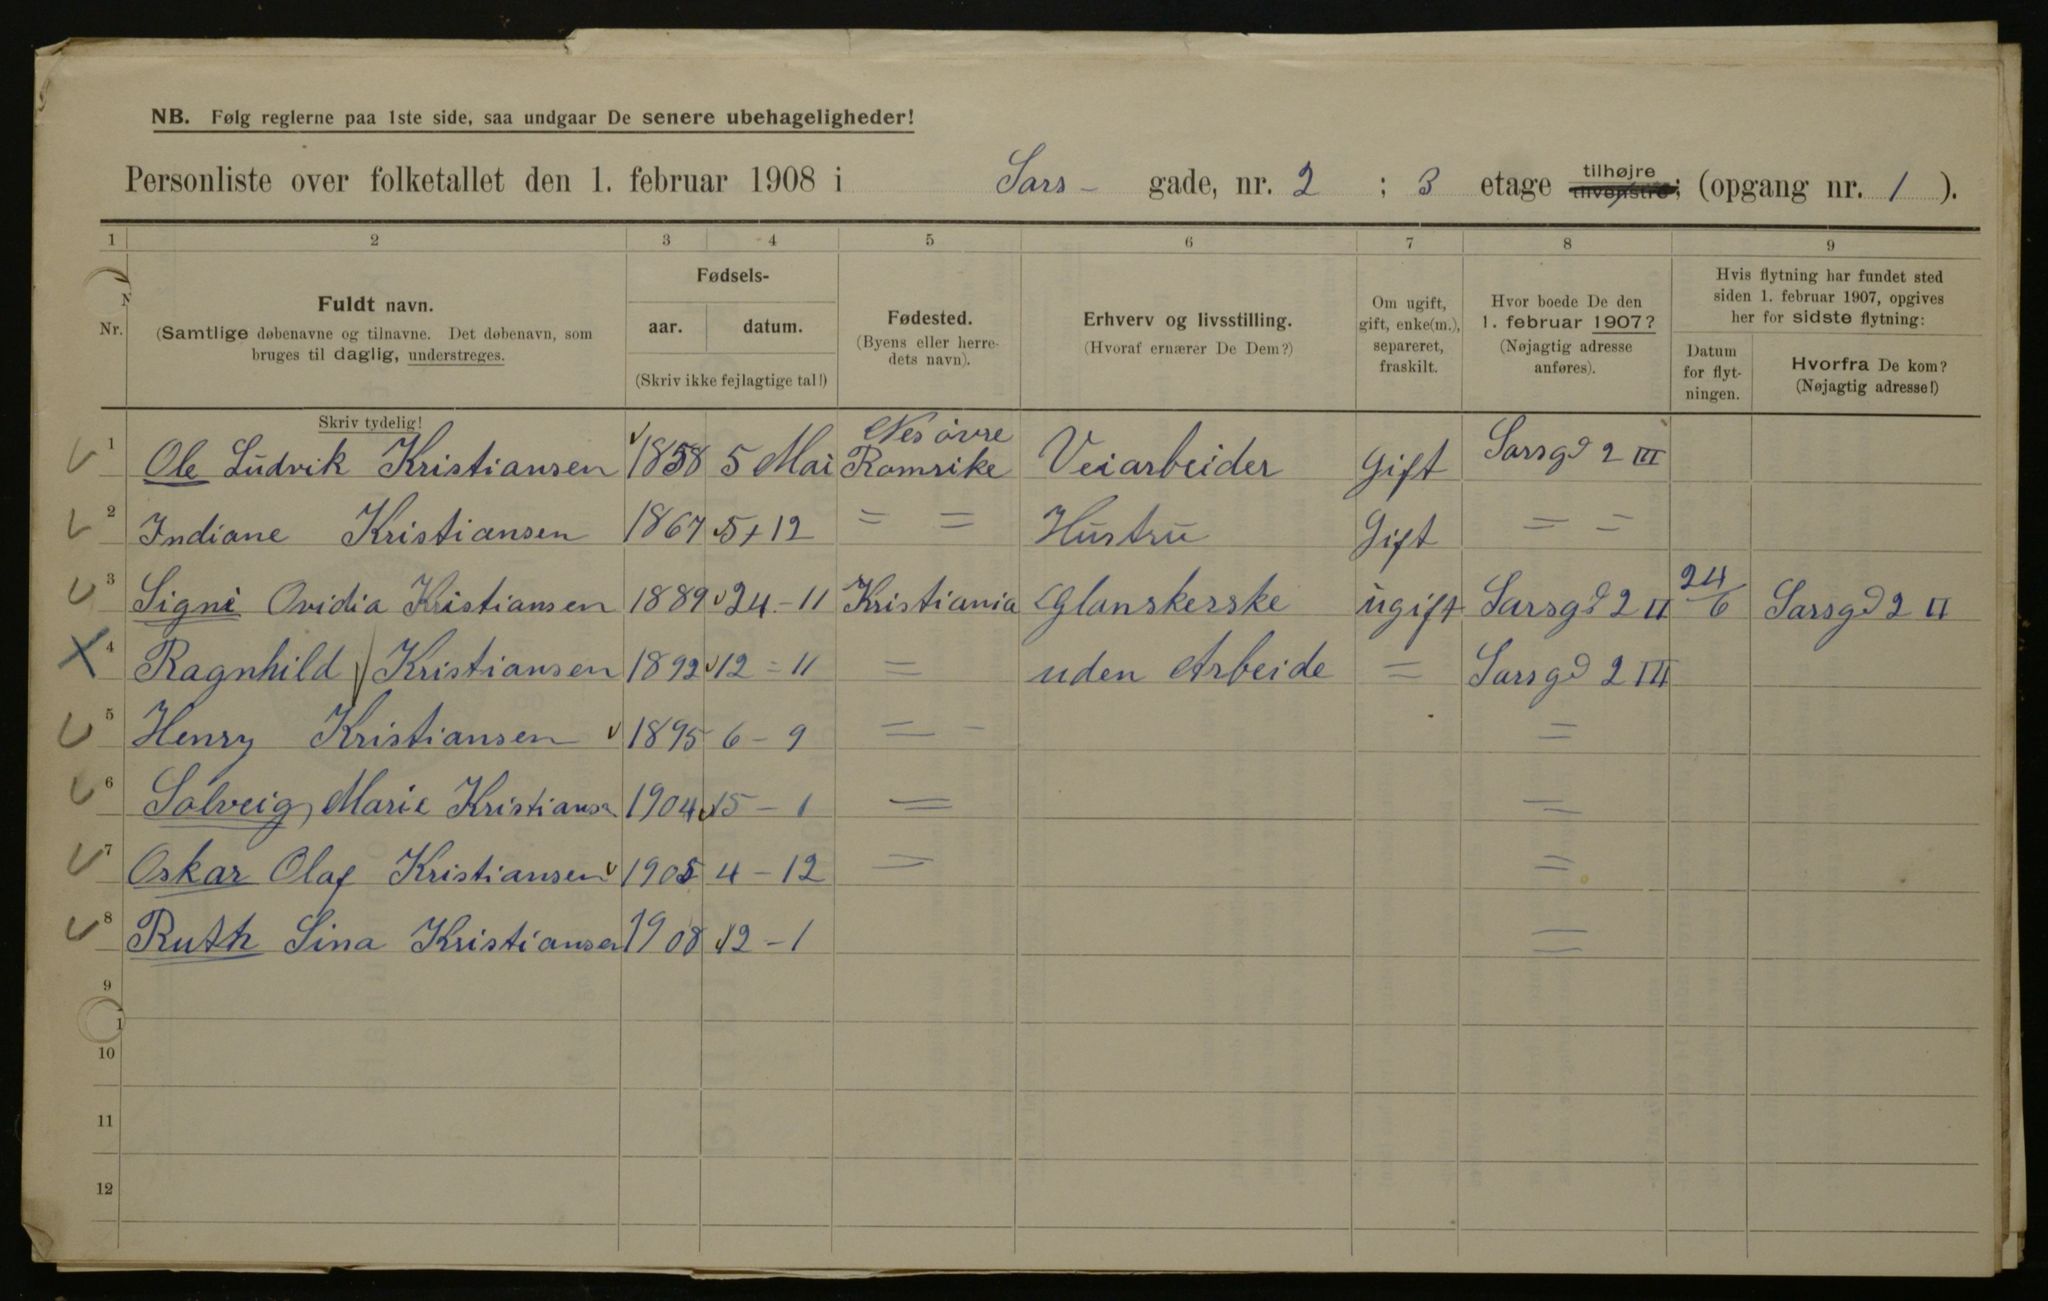 NB. Følg reglerne paa 1ste side, saa undgaar De senere ubehageligheder!
Personliste over folketallet den 1. februar 1908 i Sars- gade, nr. 2 ; 3 etage tilhøjre tilvenstre; (opgang nr. 1 ).
1 2 3 4 5 6 7 8 9
Nr.
Fuldt navn.
(Samtlige døbenavne og tilnavne. Det døbenavn, som
bruges til daglig, understreges.
Skriv tydelig!
Fødsels-
aar. datum.
(Skriv ikke fejlagtige tal!)
Fødested.
(Byens eller herre-
dets navn).
Erhverv og livsstilling.
(Hvoraf ernærer De Dem?)
Om ugift,
gift, enke(m.),
separeret,
fraskilt.
Hvor boede De den
1. februar 1907?
(Nøjagtig adresse
anføres).
Hvis flytning har fundet sted
siden 1. februar 1907, opgives
her for sidste flytning:
Datum
for flyt-
ningen.
Hvorfra De kom?
(Nøjagtig adresse!)
1 Ole Ludvik Kristiansen 1858 5 Mai Nes övre Romrike Veiarbeider Gift Sarsgd 2 III
2 Indiane Kristiansen 1867 5 + 12 = = Hustru Gift = =
3 Signe Ovidia Kristiansen 1889 24 - 11 Kristiania Glanskerske ugift Sarsgd 2 II 24/6 Sarsgd 2 II
4 Ragnhild Kristiansen 1892 12 = 11 = uden Arbeide = Sarsgd 2 III
5 Henry Kristiansen 1895 6 - 9 = - =
6 Solveig, Marie Kristiansen 1904 15 - 1 = =
7 Oskar Olaf Kristiansen 1905 4 - 12 = =
8 Ruth Sina Kristiansen 1908 12 - 1 =
9
10
11
12